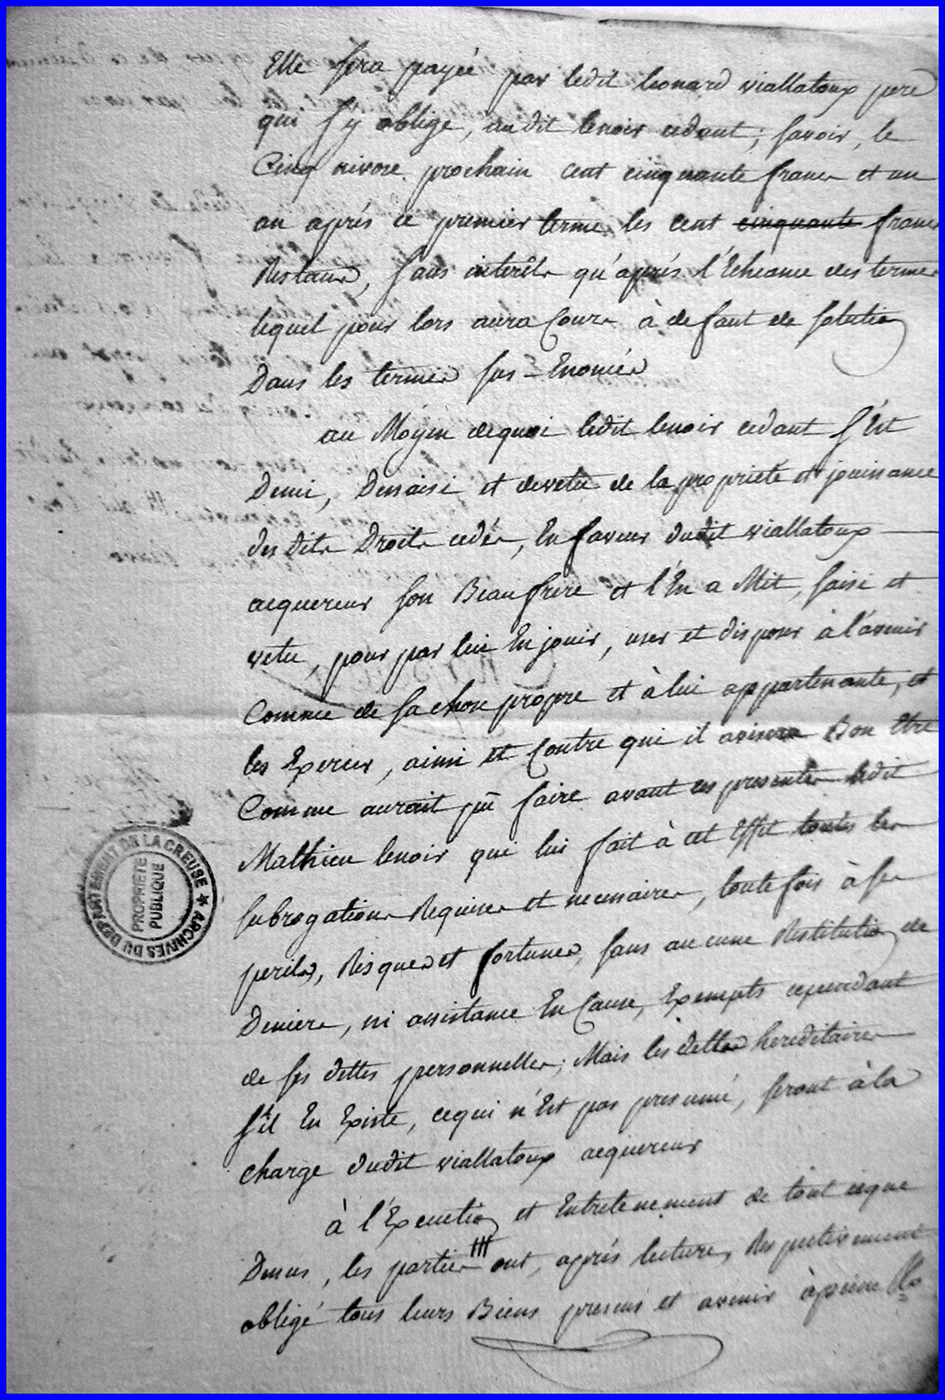 Elle sera payée par ledit leonard viallatoux pere
qui s'y oblige, audit lenoir cedant; savoir, le
Cinq nivose prochain cent cinquante francs et un
an après ce premier terme, les cent cinquante francs
Restans, sans intérêts qu'après l'Echeance des termes
lequel pour lors aura Cours à defaut de solution
Dans les termes sus-Enoncés
au Moyen dequoi ledit lenoir cedant s'Est
Demi, Desaisi et devetu de la propriete et jouissance
des dits Droits cedés, En faveur dudit viallatoux
acquereur son Beaufrere et l'En a Mit, saisi et
vetu, pour par lui En jouir, user et disposer à l'avenir
Comme de sa chose propre et à lui appartenante, et
les Exercer, ainsi et Contre qui il avisera Bon Etre
Comme aurait pû faire avant ces presentes ledit
Mathieu lenoir qui lui fait à cet Effet toutes les
subrogations Requises et necessaires, toutefois à ses
perils, Risques et fortunes, sans aucune Restitution de
Deniers, ni assistance En Cause, Exempts cependant
de ses dettes personnelles; Mais les dettes hereditaires
s'il En Existe, cequi n'Est pas presumé, seront à la
charge dudit viallatoux acquereur
à l'Execution et Entretenement de tout ceque
Dessus, les parties ont, après lecture, Respectivement
obligé tous leurs Biens presens et avenir àpeine
ARCHIVES DU DÉPARTEMENT DE LA CREUSE
PROPRIÉTÉ
PUBLIQUE